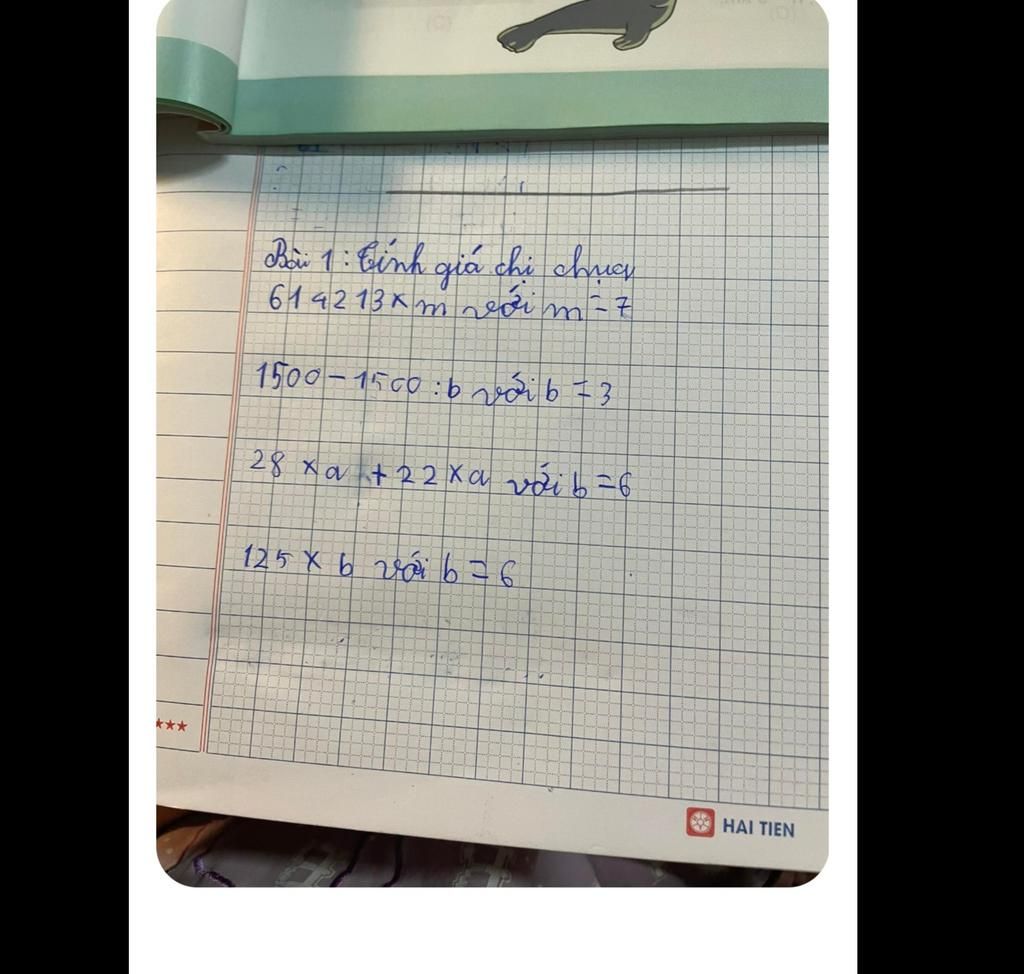 Bài 1: Tính giá chị chụa
614213 x m với m = 7
1500 - 1500 : b với b = 3
28 x a + 22 x a với b = 6
125 x b với b = 6
***
HAI TIEN